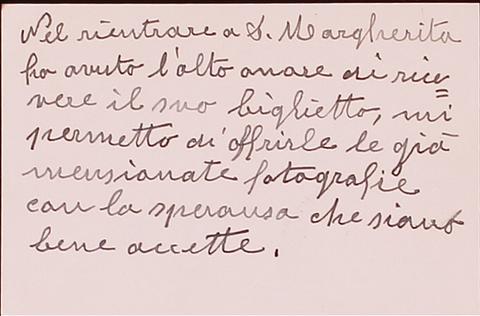 Nel rientrare a S. Margherita
ho avuto l'alto onore di rice=
vere il suo biglietto, mi
permetto di offrirle le già
mensionate fotografie
con la speransa che siano
bene accette.